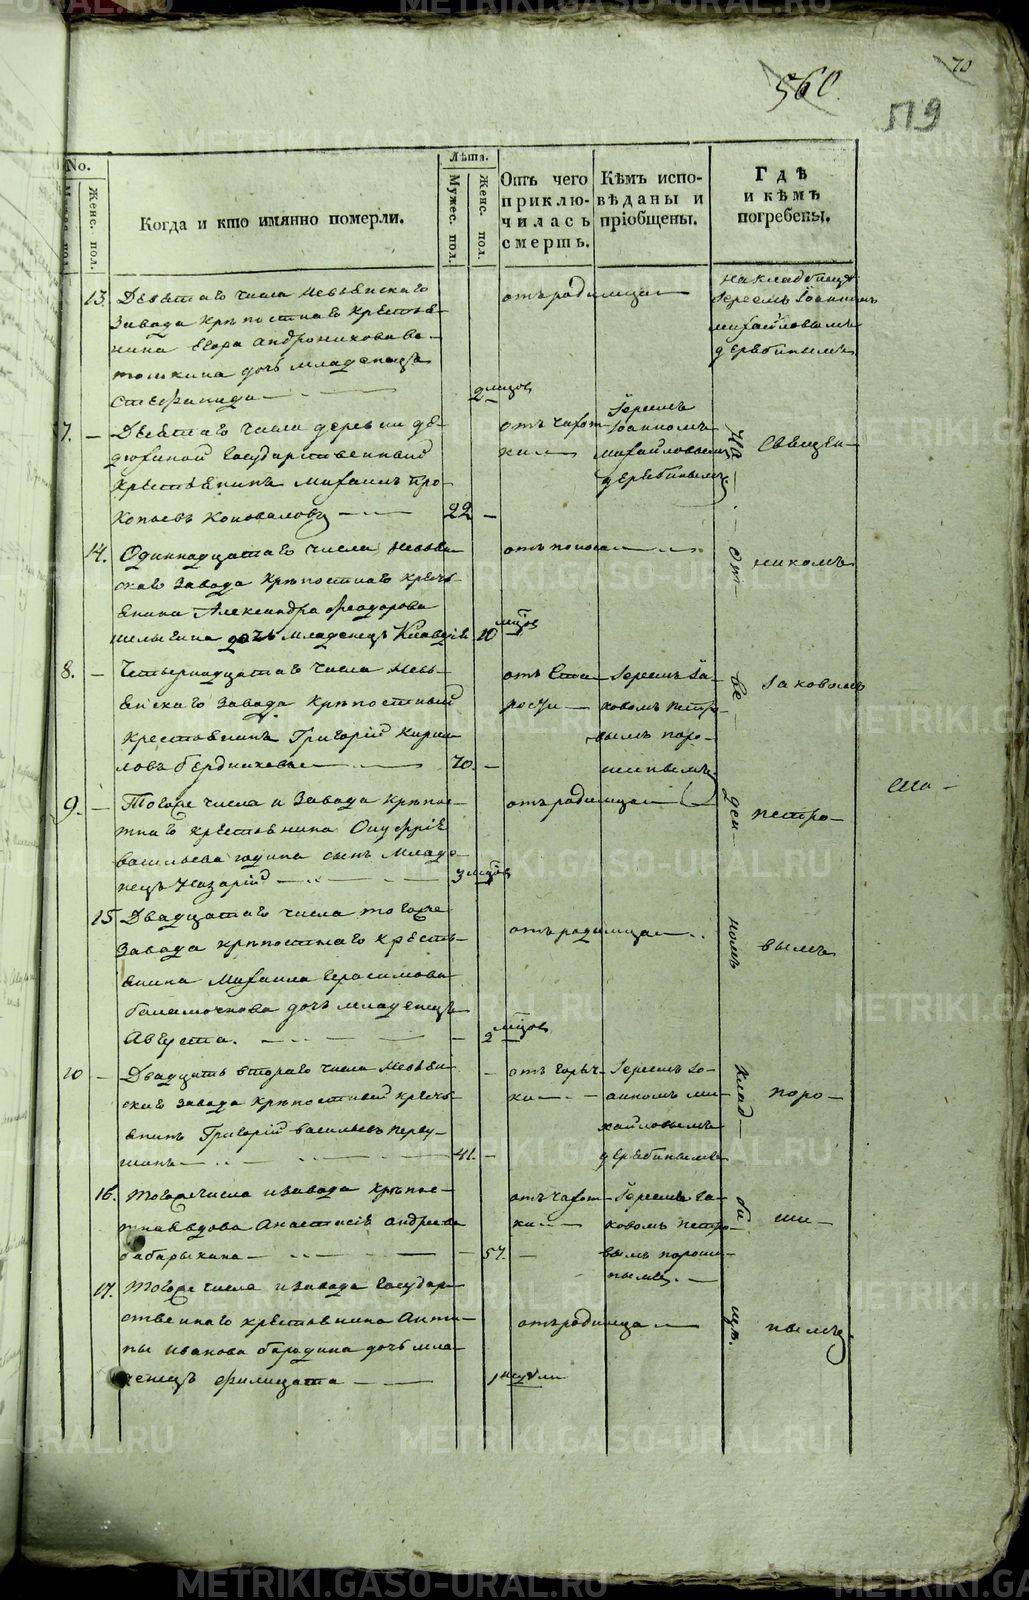 70
560.
519
No.
Женс. пол.
Когда и кто имянно померли.
Лѣта.
Мужес. пол.
Женс. пол.
Отъ чего приключилась смерть.
Кѣмъ исповѣданы и пріобщены.
Гдѣ и кѣмъ погребены.
13. Девятаго числа Невьянскаго
завода крѣпостнаго крестья-
нина Егора Андроникова
дочь младенецъ
Стефанида
2 мѣсцов
отъ родимца
на кладбищѣ
Іереемъ Іоанномъ
Михайловымъ
Дерябинымъ
7. — Девятаго числа деревни Фе-
дюниной государственный
крестьянинъ Михаилъ Про-
копьевъ Коноваловъ — 22 —
отъ чахот-
ки
Іереемъ
Іоанномъ
Михайловымъ
Дерябинымъ
14. Одиннадцатаго числа Невьян-
скаго завода крѣпостнаго кресть-
янина Александра Феодорова
Шелыгина дочь младенецъ Клавдія 10 мѣсцов
отъ поноса
8. — Четырнадцатаго числа Невь-
янскаго завода крѣпостный
крестьянинъ Григорій Кирил-
ловъ Бердниковъ — 70. —
отъ ста-
рости
Іереемъ Іа-
ковомъ Петро-
вымъ Поро-
шинымъ
9. — Тогоже числа и завода крѣпос-
тнаго крестьянина Онуфрія
Васильева сынъ младе-
нецъ Назарій — 3 мѣсцов
отъ родимца
15 Двадцатаго числа тогоже
завода крѣпостнаго кресть-
янина Михаила Герасимова
дочь младенецъ
Августа. — 2 мѣсцов
отъ родимца
10 — Двадцать втораго числа Невьян-
скаго завода крѣпостный кресть-
янинъ Григорій Васильевъ Перву-
шинъ — 41. —
отъ горяч-
ки
Іереемъ Іо-
анномъ Ми-
хайловымъ
Дерябинымъ
16. Тогоже числа и завода крѣпос-
тная вдова Анастасія Андреева
Бабарыкина — 57. —
отъ чахот-
ки
Іереемъ Іа-
ковомъ Петро-
вымъ Пороши-
нымъ.
17. Тогоже числа и завода государ-
ственнаго крестьянина Анти-
пы Иванова дочь мла-
денецъ Филицата — 1 недѣли
отъ родимца
На — от — ве — ден — номъ клад — би — щѣ.
Священ —
никомъ
Іаковомъ
Петро —
вымъ
Поро —
ши —
нымъ.
METRIKI.GASO-URAL.RU